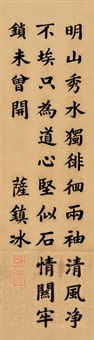 明山秀水獨徘徊兩袖清風净
不埃只為道心堅似石情關牢
鎖未曾開　薩鎮冰